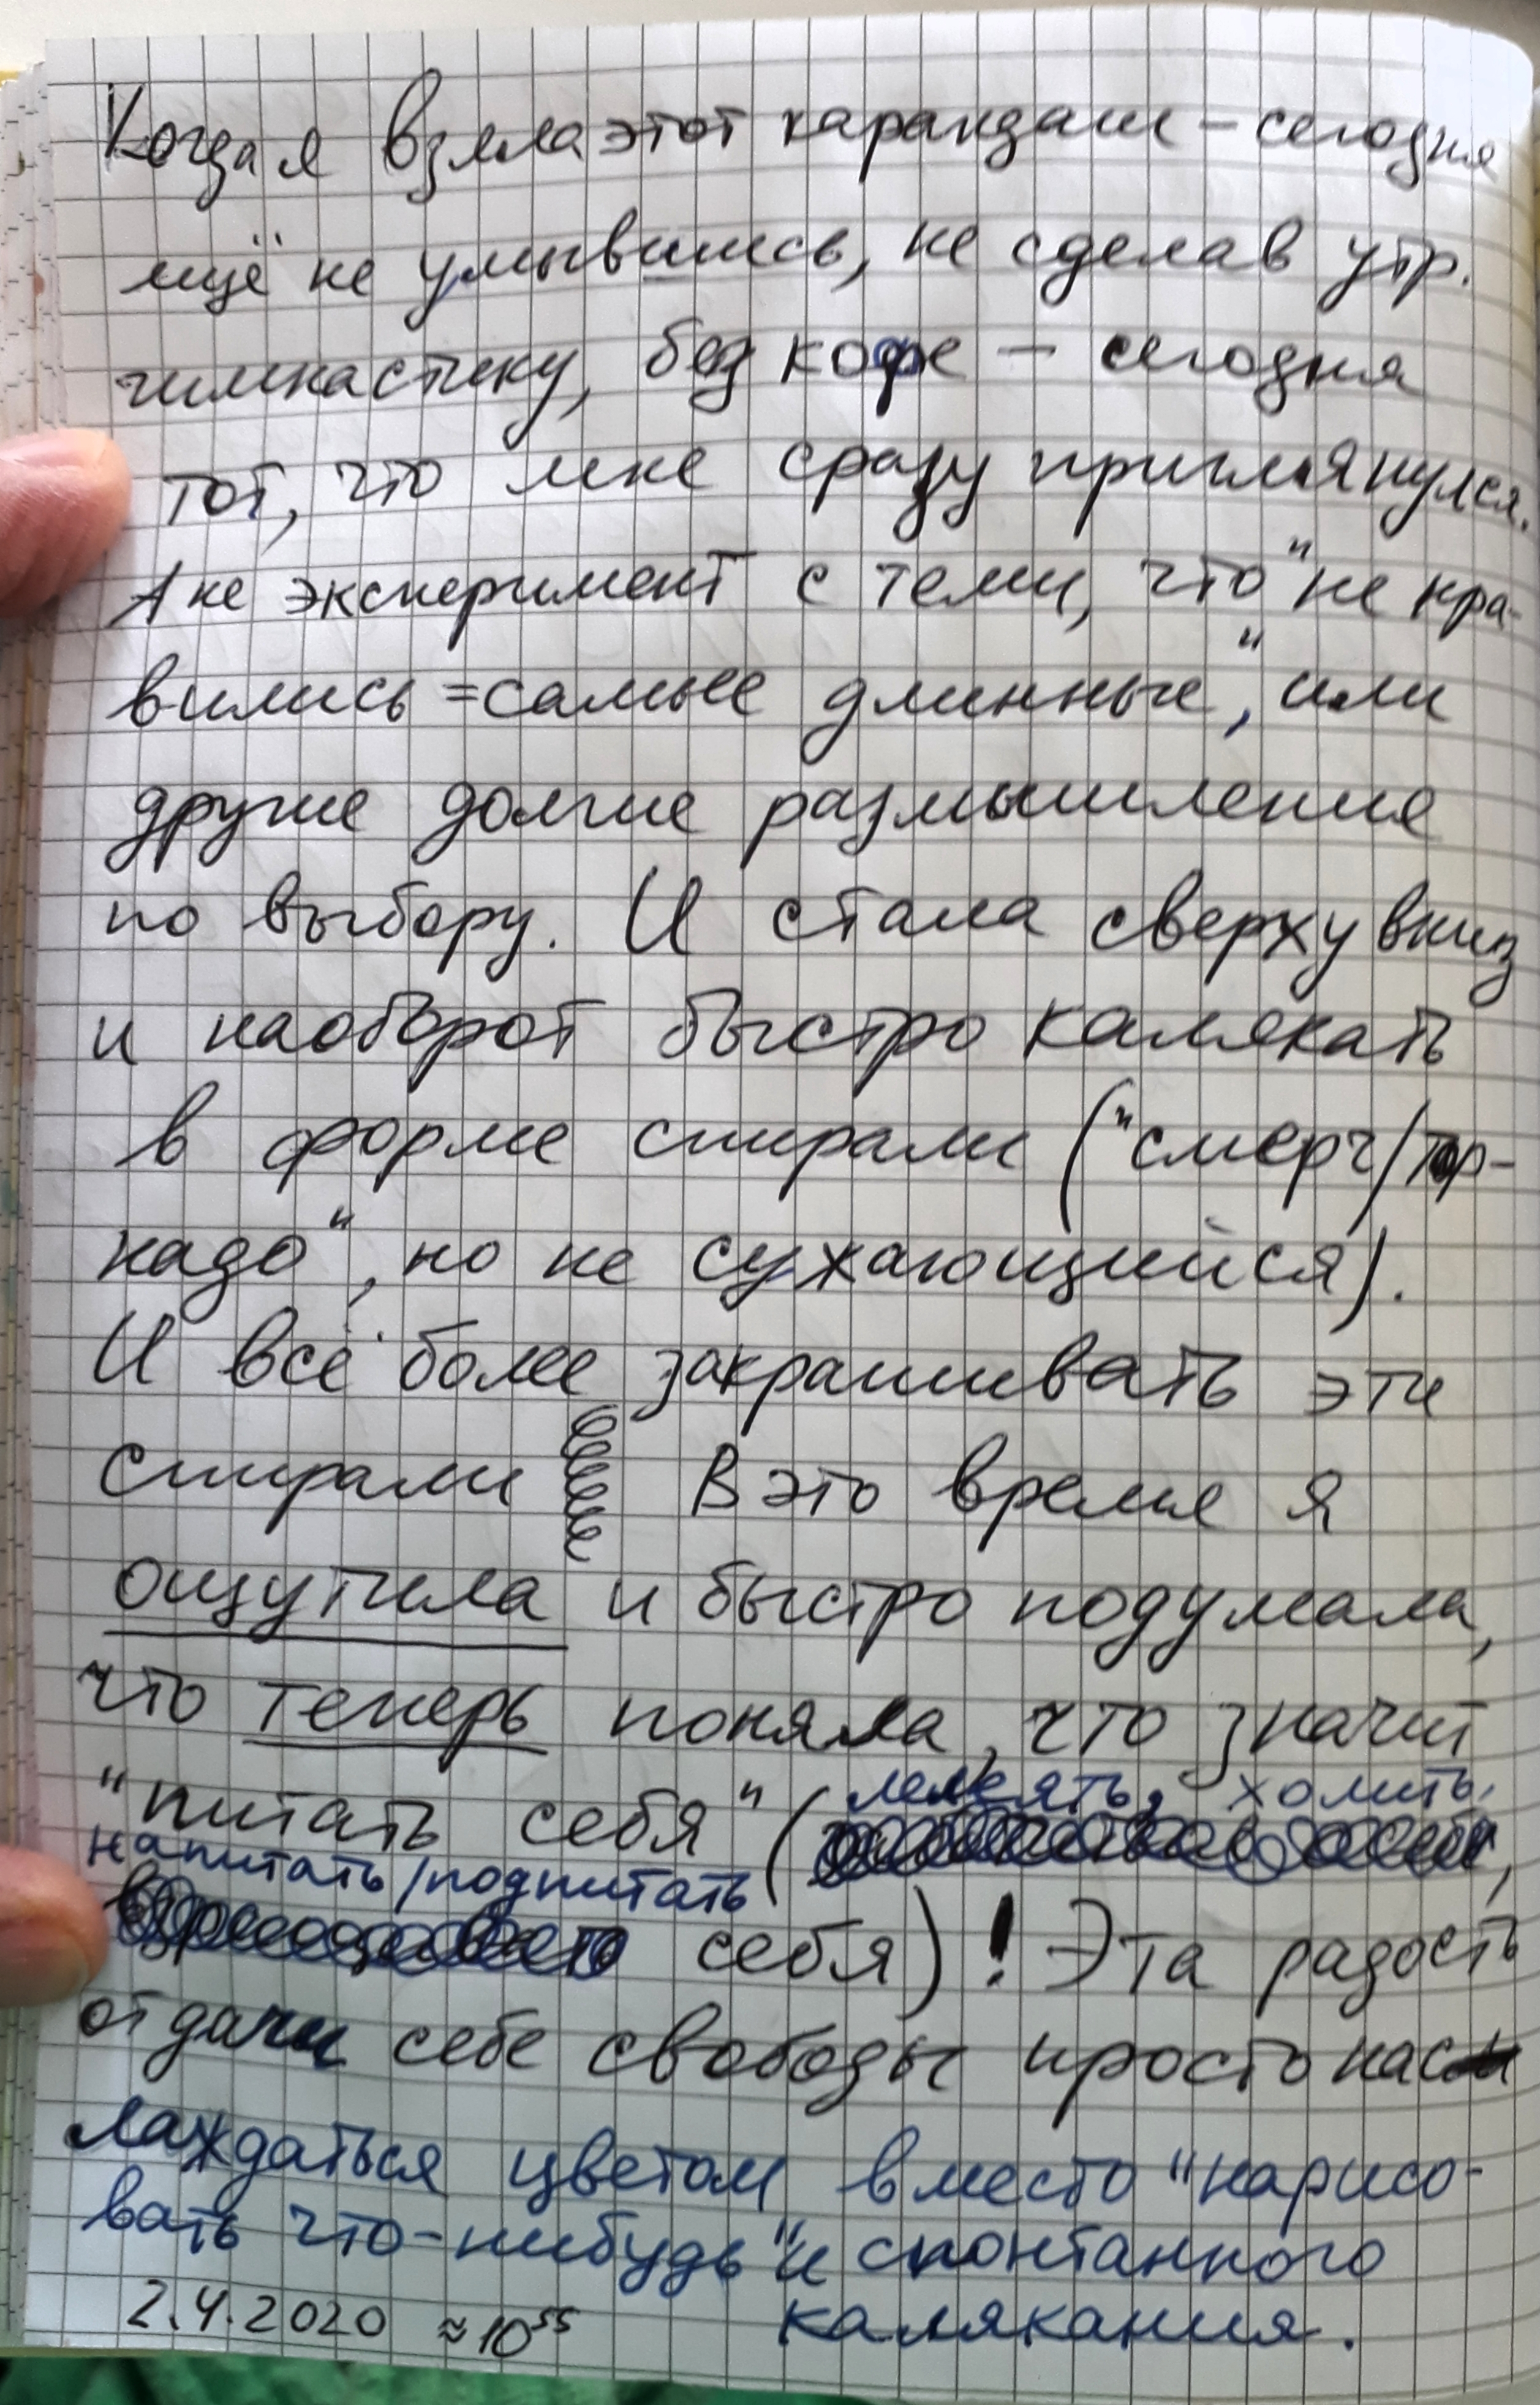 Когда я взяла этот карандаш – сегодня
ещё не умывшись, не сделав утр.
гимнастику, без кофе – сегодня
тот, что мне сразу приглянулся.
А не эксперимент с теми, что "не нра-
вились = самые длинные", или
другие долгие размышления
по выбору. И стала сверху вниз
и наоборот быстро калякать
в форме спирали ("смерч/тор-
надо", но не сужающийся).
И всё более закрашивать эти
спирали В это время я
ощутила и быстро подумала,
что теперь поняла, что значит
лелеять, холить,
"питать себя" (
напитать/подпитать
себя)! Эта радость
отдачи себе свободы просто нас
лаждаться цветом вместо "нарисо-
вать что-нибудь" и спонтанного
калякания.
2.4.2020 ≈ 10 55